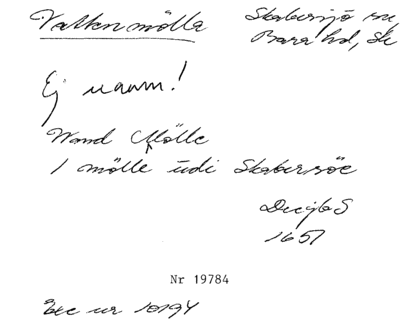 Vattenmölla Skabersjö sn,
Bara hd, Sk
Ej namn!
Wand Mölle
1 mölle udi Skabersöe
1651
Nr 19784